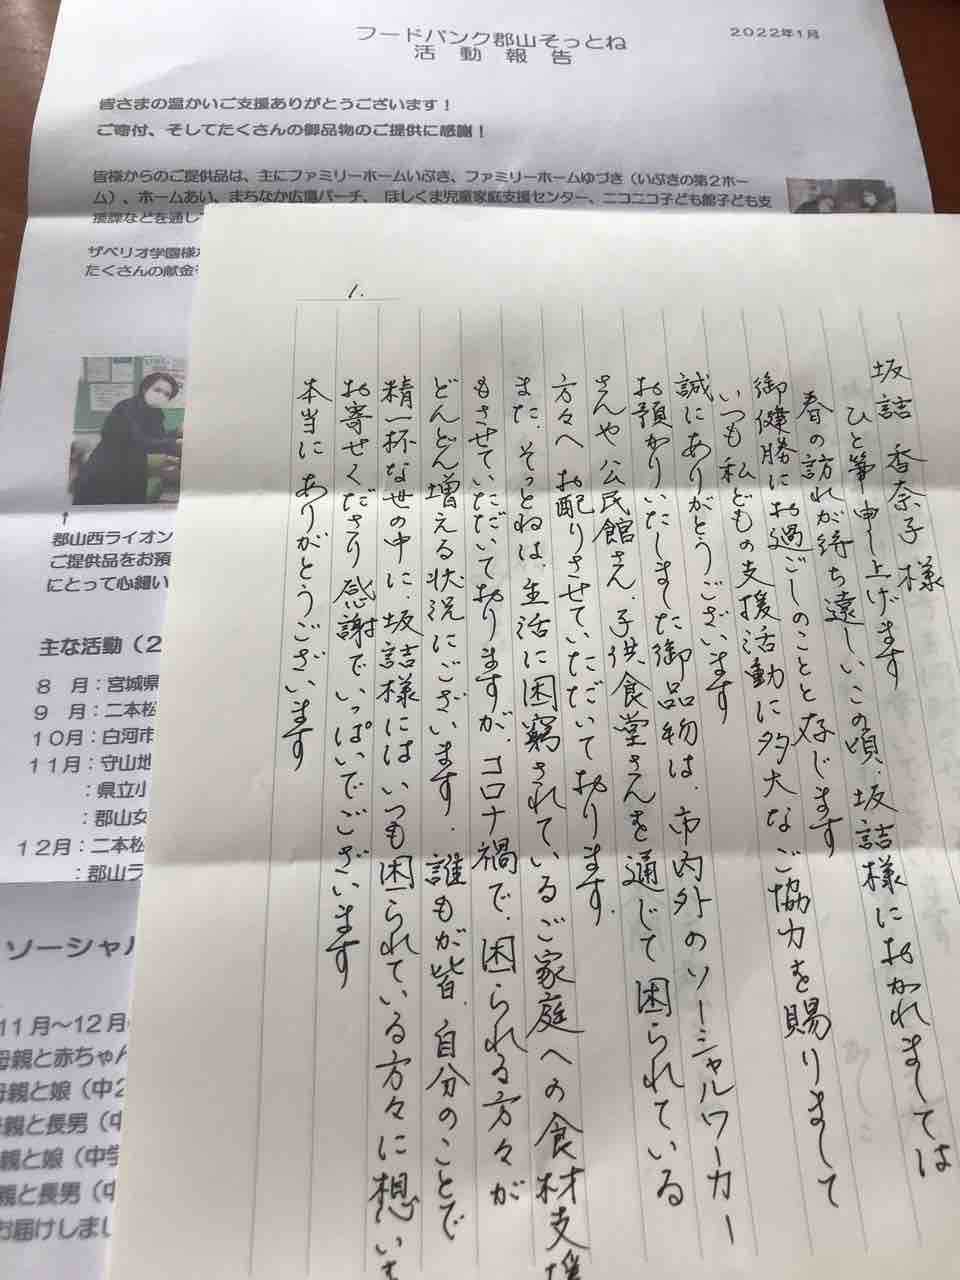 フードバンク郡山そっとね
活動報告
2022年1月
皆さまの温かいご支援ありがとうございます！
ご寄付、そしてたくさんの御品物のご提供に感謝！
皆様からのご提供品は、主にファミリーホームいぶき、ファミリーホームゆづき（いぶきの第2ホー
ム）、ホームあい、まちなか広場パーチ、ほしくま児童家庭支援センター、ニコニコ子ども館子ども支
援課などを通し
ザベリオ学園様
たくさんの献金
郡山西ライオン
ご提供品をお預
にとって心細い
主な活動（2
8月：宮城県
9月：二本松
10月：白河市
11月：守山地
：県立小
：郡山女
12月：二本松
：郡山ラ
ソーシャル
11月～12月
母親と赤ちゃん
母親と娘（中2
母親と長男（中
母親と娘（中学
母親と長男（中
お届けしまし
1.
坂詰 香奈子 様
ひと筆申し上げます
春の訪れが待ち遠しいこの頃、坂詰様におかれましては
御健勝にお過ごしのことと存じます
いつも私どもの支援活動に多大なご協力を賜りまして
誠にありがとうございます
お預かりいたしました御品物は、市内外のソーシャルワーカー
さんや公民館さん、子供食堂さんを通じて困られている
方々へお配りさせていただいております。
また、そっとねは、生活に困窮されているご家庭への食材支援
もさせていただいておりますが、コロナ禍で、困られる方々が
どんどん増える状況にございます。誰もが皆、自分のことで
精一杯な世の中に、坂詰様にはいつも困られている方々に想いを
お寄せくださり感謝でいっぱいでございます
本当にありがとうございます